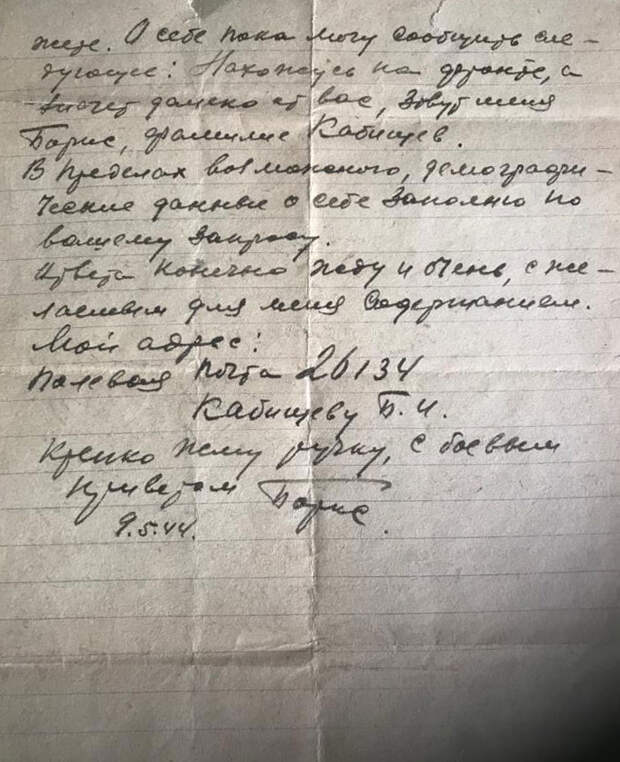 жете. О себе пока могу сообщить сле-
дующее: Нахожусь на фронте, а
значет далеко от вас, Зовут меня
Борис, фамилие Кабищев.
В пределах возможного, демографи-
ческие данные о себе заполню по
вашему запросу.
Ответа конечно жду и очень, с же-
лаемым для меня Содержанием.
Мой адрес:
Полевая почта 26134
Кабищеву Б. И.
Крепко жму ручку, с боевым
приветом Борис.
9.5.44.